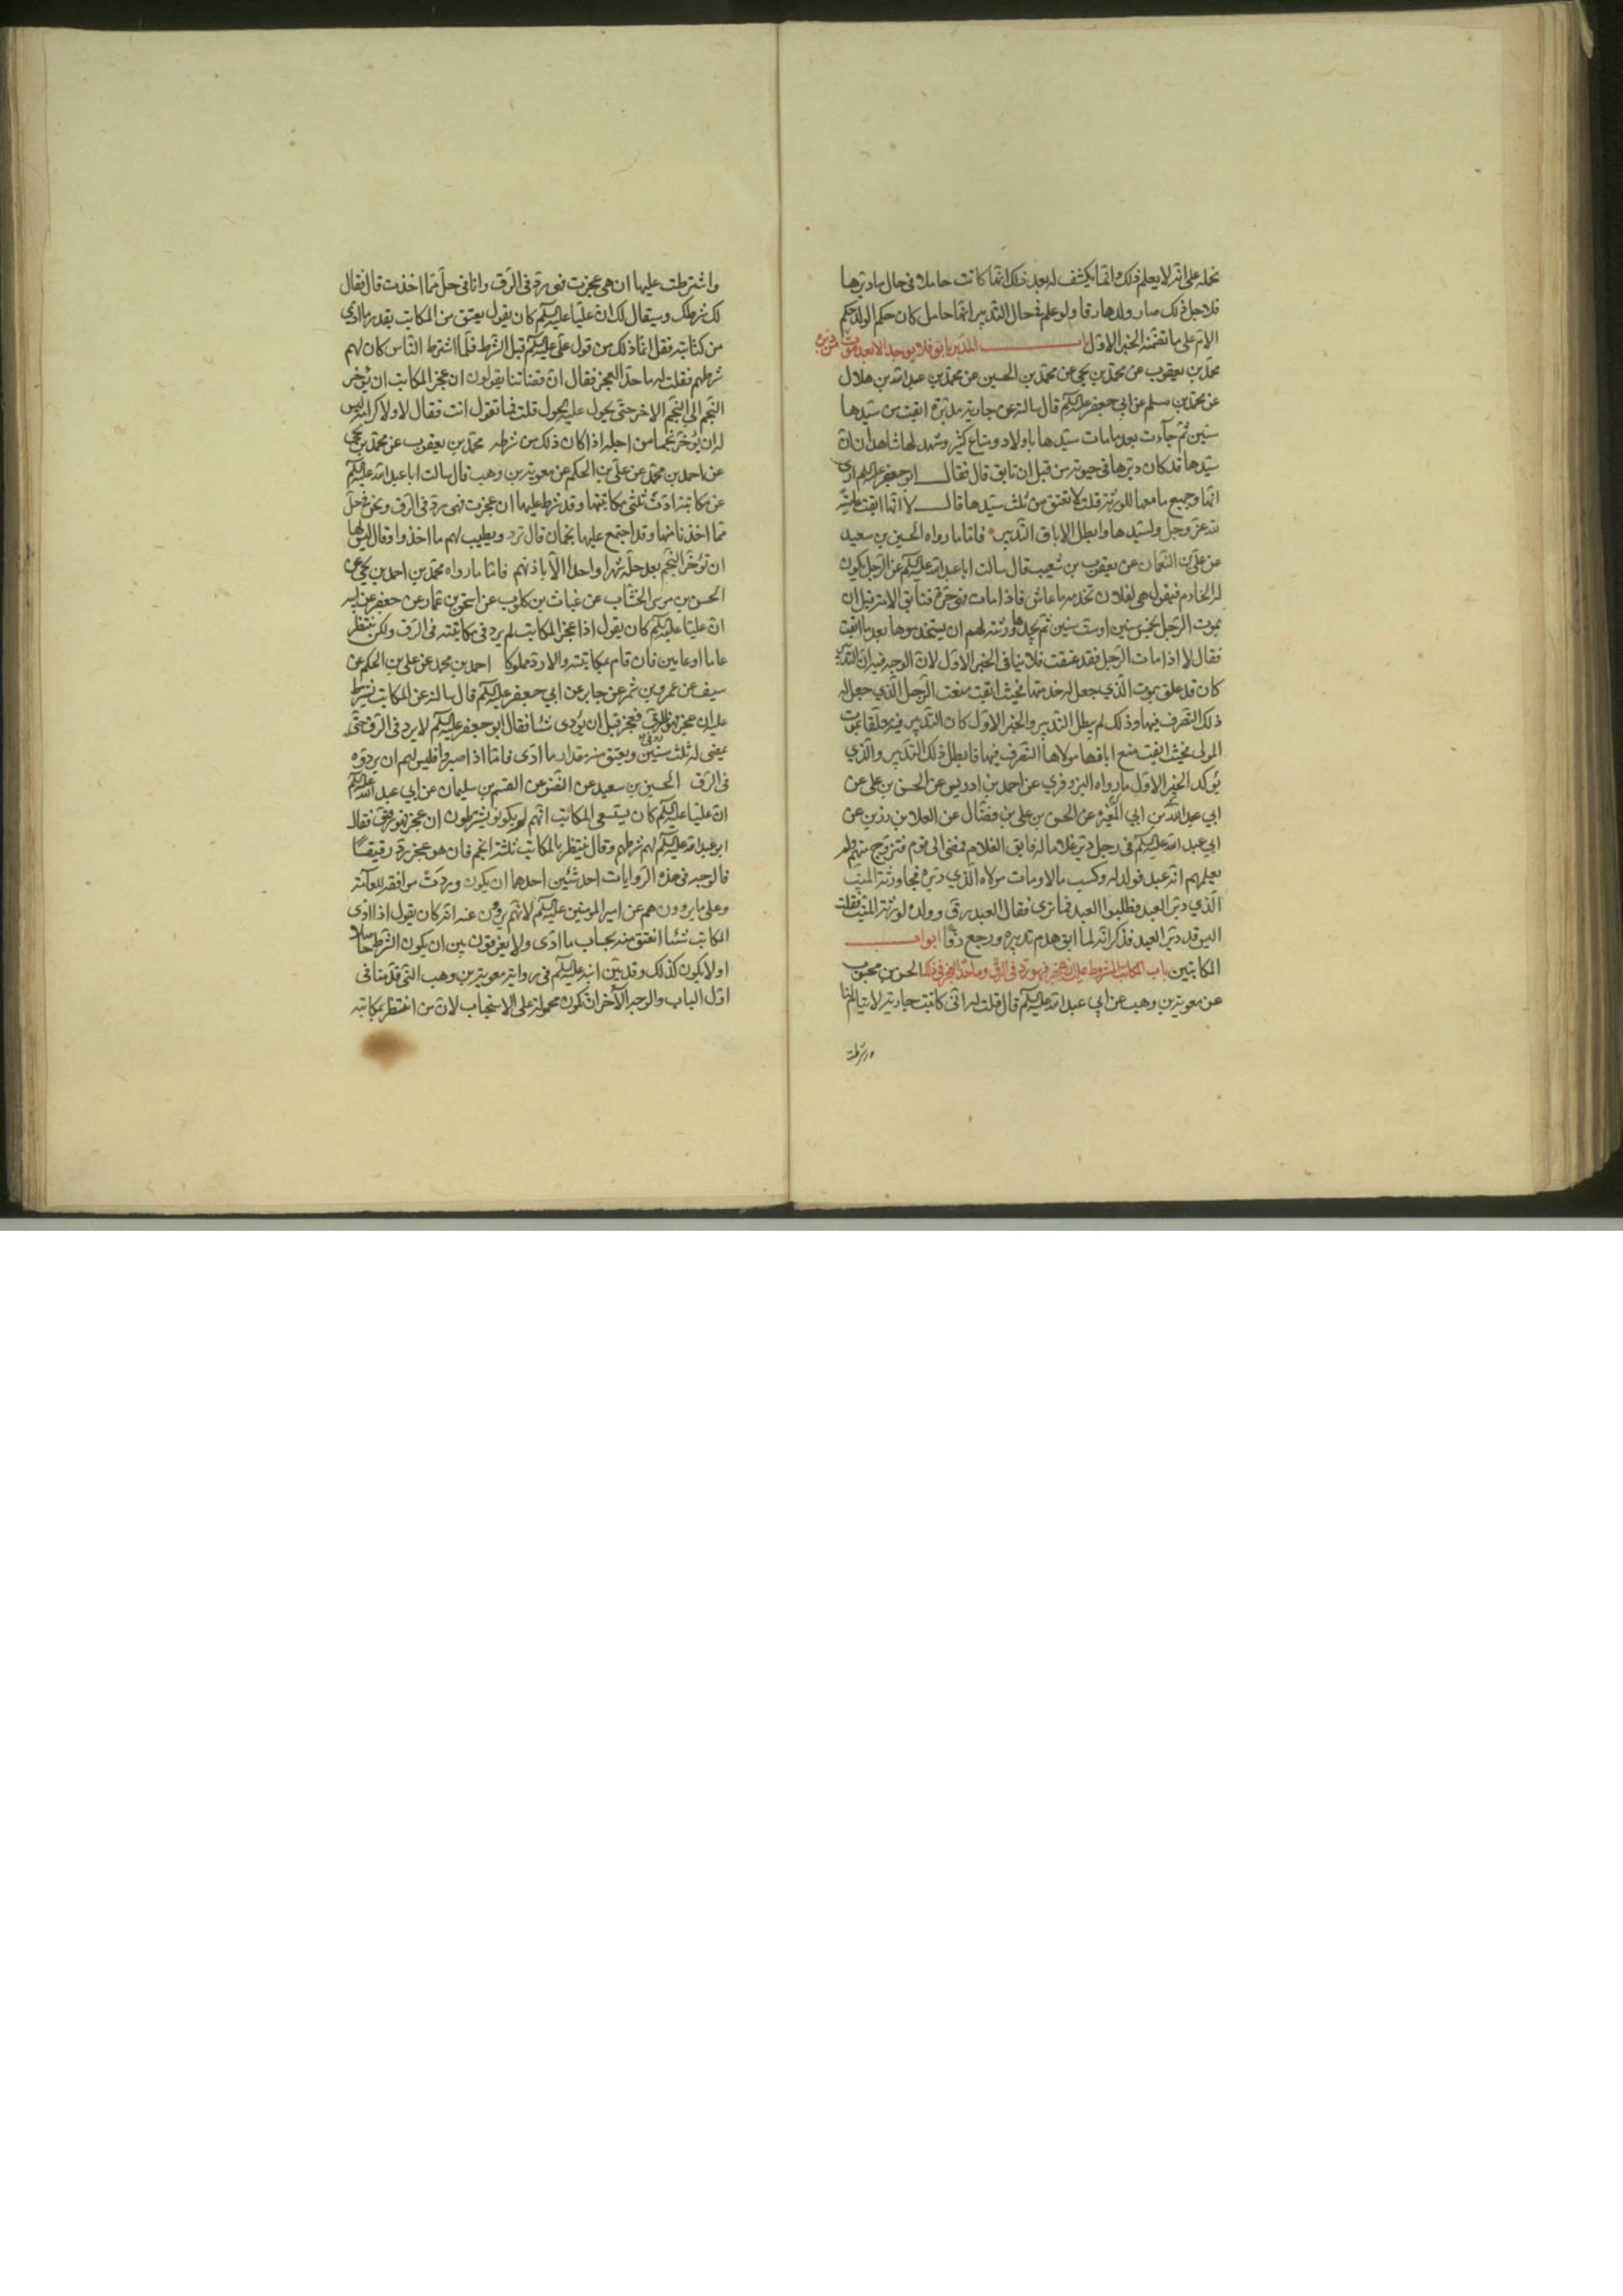 نحمله على انه لا يعلم ذلك وانما يكشف له بعد ذلك انها كانت حاملا في حال ما دبرها
فلاجل ذلك صار ولدها رقا ولو علم في حال التدبير انها حامل كان حكم الولد حكم
الام على ما تضمنه الخبر الاول باب المدبر يابق فلا يوجد الا بعد موت من دبره
محمد بن يعقوب عن محمد بن يحيى عن محمد بن الحسين عن محمد بن عبد الله بن هلال
عن محمد بن مسلم عن ابي جعفر عليه السلم قال سالته عن جارية مدبرة ابقت من سيدها
سنين ثم جاءت بعد ما مات سيدها باولاد ومتاع كثير وشهد لها شاهدان ان
سيدها قد كان دبرها في حيوته من قبل ان تابق قال فقال ابو جعفر عليه السلم ارى
انها وجميع ما معها للورثة قلت لا تعتق من ثلث سيدها قال لا انها ابقت عاصية
لله عز وجل ولسيدها وابطل الاباق التدبير فاما ما رواه الحسين بن سعيد
عن علي بن النعمان عن يعقوب بن شعيب قال سالت ابا عبد الله عليه السلم عن الرجل يكون
له الخادم فيقول هي لفلان تخدمه ما عاش فاذا مات فهي حرة فتابق الامة قبل ان
يموت الرجل بخمس سنين او ست سنين ثم يجدها ورثته لهم ان يستخدموها بعد ما ابقت
فقال لا اذا مات الرجل فقد عتقت فلا ينافي الخبر الاول لان الوجه فيه ان التدبير
كان قد علق بموت الذي جعل له خدمتها فحيث ابقت منعت الرجل الذي جعل له
ذلك التصرف فيها وذلك لم يبطل التدبير والخبر الاول كان التدبير فيه معلقا بموت
المولى فحيث ابقت منع اباقها مولاها التصرف فيها فابطل ذلك التدبير والذي
يؤكد الخبر الاول ما رواه البزوفري عن احمد بن ادريس عن الحسن بن علي عن
ابي عبد الله بن ابي المغيرة عن الحسن بن علي بن فضال عن العلا بن رزين عن
ابي عبد الله عليه السلم في رجل دبر غلاما له فابق الغلام فمضى الى قوم فتزوج منهم ولم
يعلمهم انه عبد فولد له وكسب مالا ومات مولاه الذي دبره فجاء ورثة الميت
الذي دبر العبد فطلبوا العبد فما ترى فقال العبد رق وولده لورثة الميت فقلت
اليس قد دبر العبد فذكر انه لما ابق هدم تدبيره ورجع رقا ابواب
المكاتبين باب المكاتب المشروط عليه ان عجز فهو رد في الرق وما حد العجز في ذلك الحسن بن محبوب
عن معوية بن وهب عن ابي عبد الله عليه السلم قال قلت له اني كاتبت جارية لايتام لنا
واشترطت
واشترطت عليها ان هي عجزت فهي رد في الرق وانا في حل مما اخذت قال فقال
لك شرطك وسيقال لك ان عليا عليه السلم كان يقول يعتق من المكاتب بقدر ما ادى
من كتابته فقل انما ذلك من قول علي عليه السلم قبل الشرط فلما اشترط الناس كان لهم
شرطهم فقلت له ما حد العجز فقال ان قضاتنا يقولون ان عجز المكاتب ان يؤخر
النجم الى النجم الاخر حتى يحول عليه الحول قلت فما تقول انت فقال لا ولا كرامة ليس
له ان يؤخر نجما من اجله اذا كان ذلك من شرطه محمد بن يعقوب عن محمد بن يحيى
عن احمد بن محمد عن علي بن الحكم عن معوية بن وهب قال سالت ابا عبد الله عليه السلم
عن مكاتبة ادت ثلثي مكاتبتها وقد شرط عليها ان عجزت فهي رد في الرق ونحن في حل
مما اخذنا منها وقد اجتمع عليها نجمان قال ترد ويطيب لهم ما اخذوا وقال ليس لها
ان تؤخر النجم بعد حله شهرا واحدا الا باذنهم فاما ما رواه محمد بن احمد بن يحيى عن
الحسن بن موسى الخشاب عن غياث بن كلوب عن اسحق بن عمار عن جعفر عن ابيه
ان عليا عليه السلم كان يقول اذا عجز المكاتب لم يرد في مكاتبته في الرق ولكن ينتظر
عاما او عامين فان قام بمكاتبته والا رد مملوكا احمد بن محمد عن علي بن الحكم عن
سيف عن عمرو بن شمر عن جابر عن ابي جعفر عليه السلم قال سالته عن المكاتب يشترط
عليه ان عجز فهو رد في الرق فعجز قبل ان يؤدي شئا فقال ابو جعفر عليه السلم لا يرد في الرق حتى
يمضي له ثلث سنين ويعتق منه مقدار ما ادى فاما اذا صبروا فليس لهم ان يردوه
في الرق الحسين بن سعيد عن النضر عن القسم بن سليمان عن ابي عبد الله عليه السلم
ان عليا عليه السلم كان يستسعي المكاتب انهم لم يكونوا يشترطون ان عجز فهو رق فقال
ابو عبد الله عليه السلم لهم شرطهم وقال ينتظر بالمكاتب ثلثة انجم فان هو عجز رد رقيقا
فالوجه في هذه الروايات احد شئين احدهما ان يكون وردت موافقة للعامة
وعلى ما يروون هم عن امير المومنين عليه السلم لانهم يروون عنه انه كان يقول اذا ادى
المكاتب شئا انعتق منه بحساب ما ادى ولا يفرقون بين ان يكون الشرط حاصلا
او لا يكون كذلك وقد بين ابو عبد الله عليه السلم في رواية معوية بن وهب التي قدمنا في
اول الباب والوجه الآخر ان تكون محمولة على الاستحباب لان من انتظر بمكاتبه